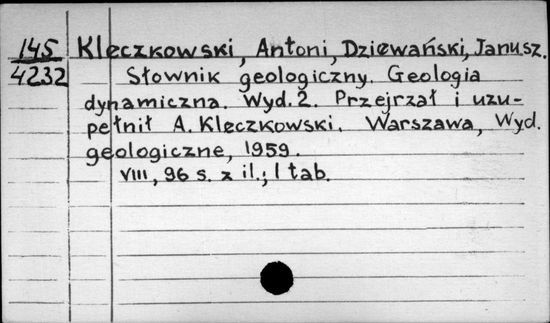 145 Kleczkowski, Antoni, Dziewański, Janusz.
4232 Słownik geologiczny. Geologia
dynamiczna. Wyd. 2. Przejrzał i uzu-
pełnił A. Kleczkowski. Warszawa, Wyd.
geologiczne, 1959.
VIII, 96 s. z il.; 1 tab.